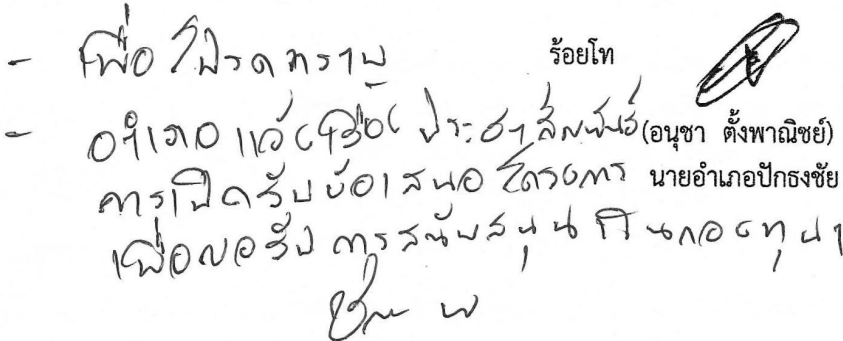 - เพื่อโปรดทราบ
- อำเภอแจ้งเรื่อง ประชาสัมพันธ์
การเปิดรับข้อเสนอโครงการ
เพื่อขอรับการสนับสนุนเงินกองทุนฯ
ร้อยโท
(อนุชา ตั้งพาณิชย์)
นายอำเภอปักธงชัย